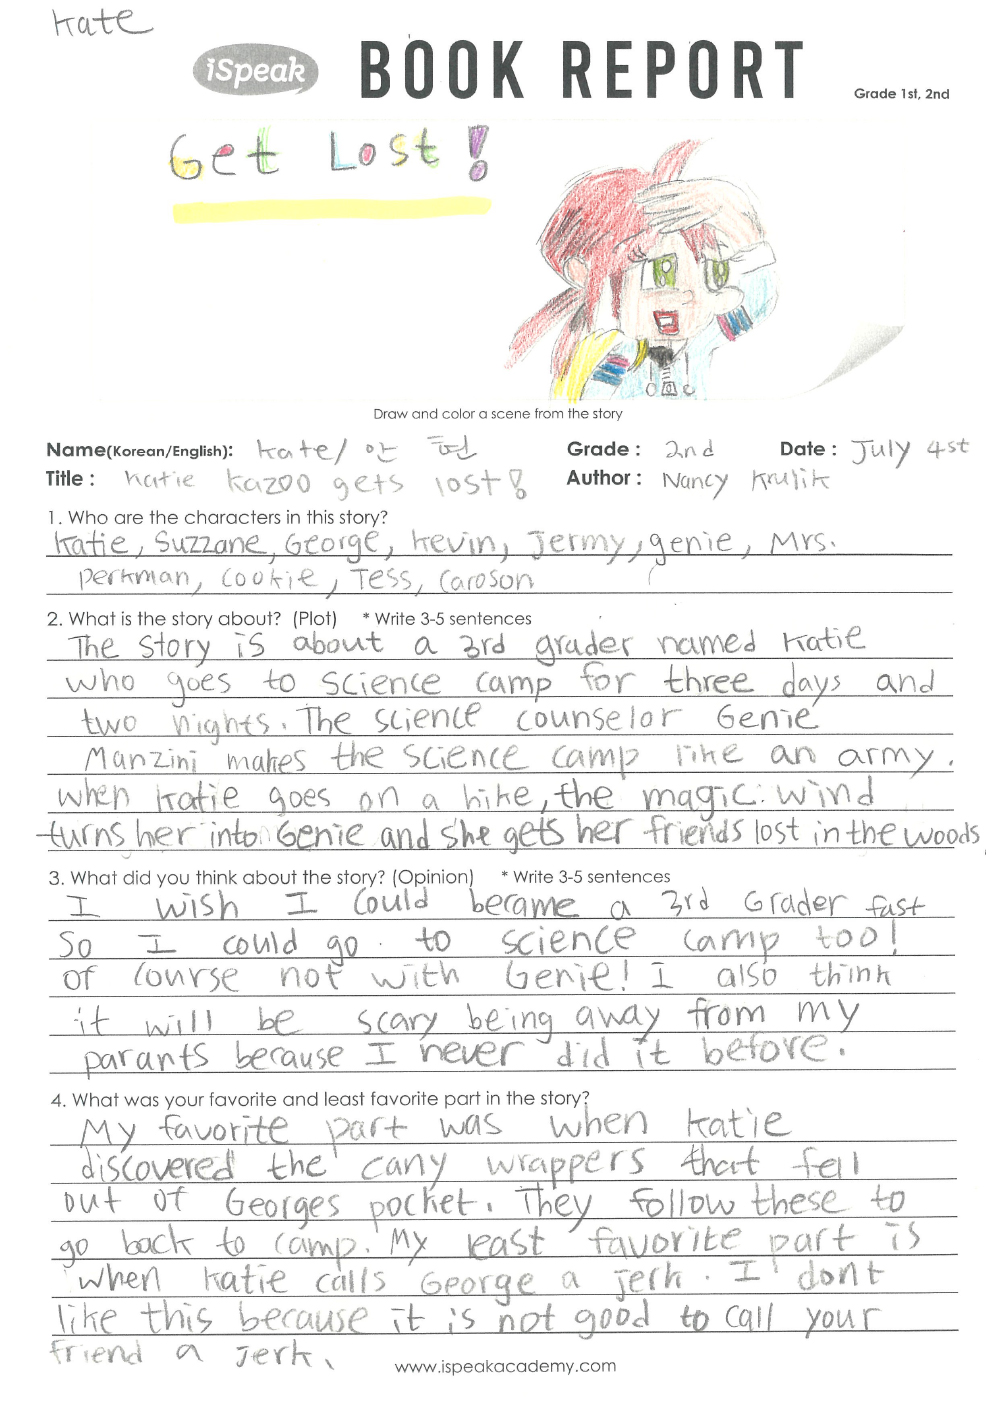 Kate
iSpeak BOOK REPORT
Grade 1st, 2nd
Get Lost!
Draw and color a scene from the story
Name(Korean/English): Kate/ 안 현 Grade : 2nd Date : July 4st
Title : Katie kazoo gets lost! Author : Nancy Krulik
1. Who are the characters in this story?
Katie, Suzzane, George, Kevin, Jermy, genie, Mrs.
perkman, cookie, Tess, Caroson
2. What is the story about? (Plot) * Write 3-5 sentences
The story is about a 3rd grader named Katie
who goes to science camp for three days and
two nights. The science counselor Genie
Manzini makes the science camp like an army.
when Katie goes on a hike, the magic wind
turns her into Genie and she gets her friends lost in the woods.
3. What did you think about the story? (Opinion) * Write 3-5 sentences
I wish I could became a 3rd Grader fast
So I could go to science camp too!
of course not with Genie! I also think
it will be scary being away from my
parants because I never did it before.
4. What was your favorite and least favorite part in the story?
My favorite part was when Katie
discovered the cany wrappers that fell
out of Georges pocket. They follow these to
go back to camp. My least favorite part is
when Katie calls George a jerk. I dont
like this because it is not good to call your
friend a jerk.
www.ispeakacademy.com